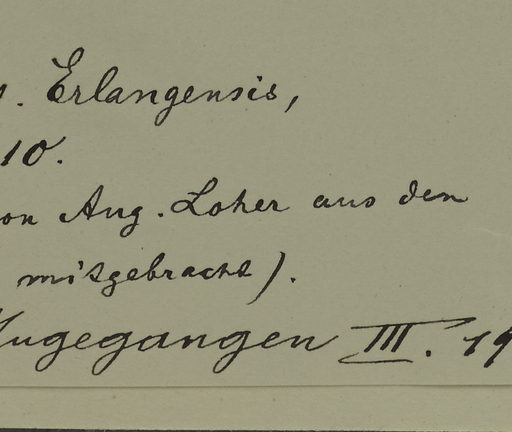 . Erlangensis,
10.
on Aug. Loher aus den
mitgebracht).
Zugegangen III. 19